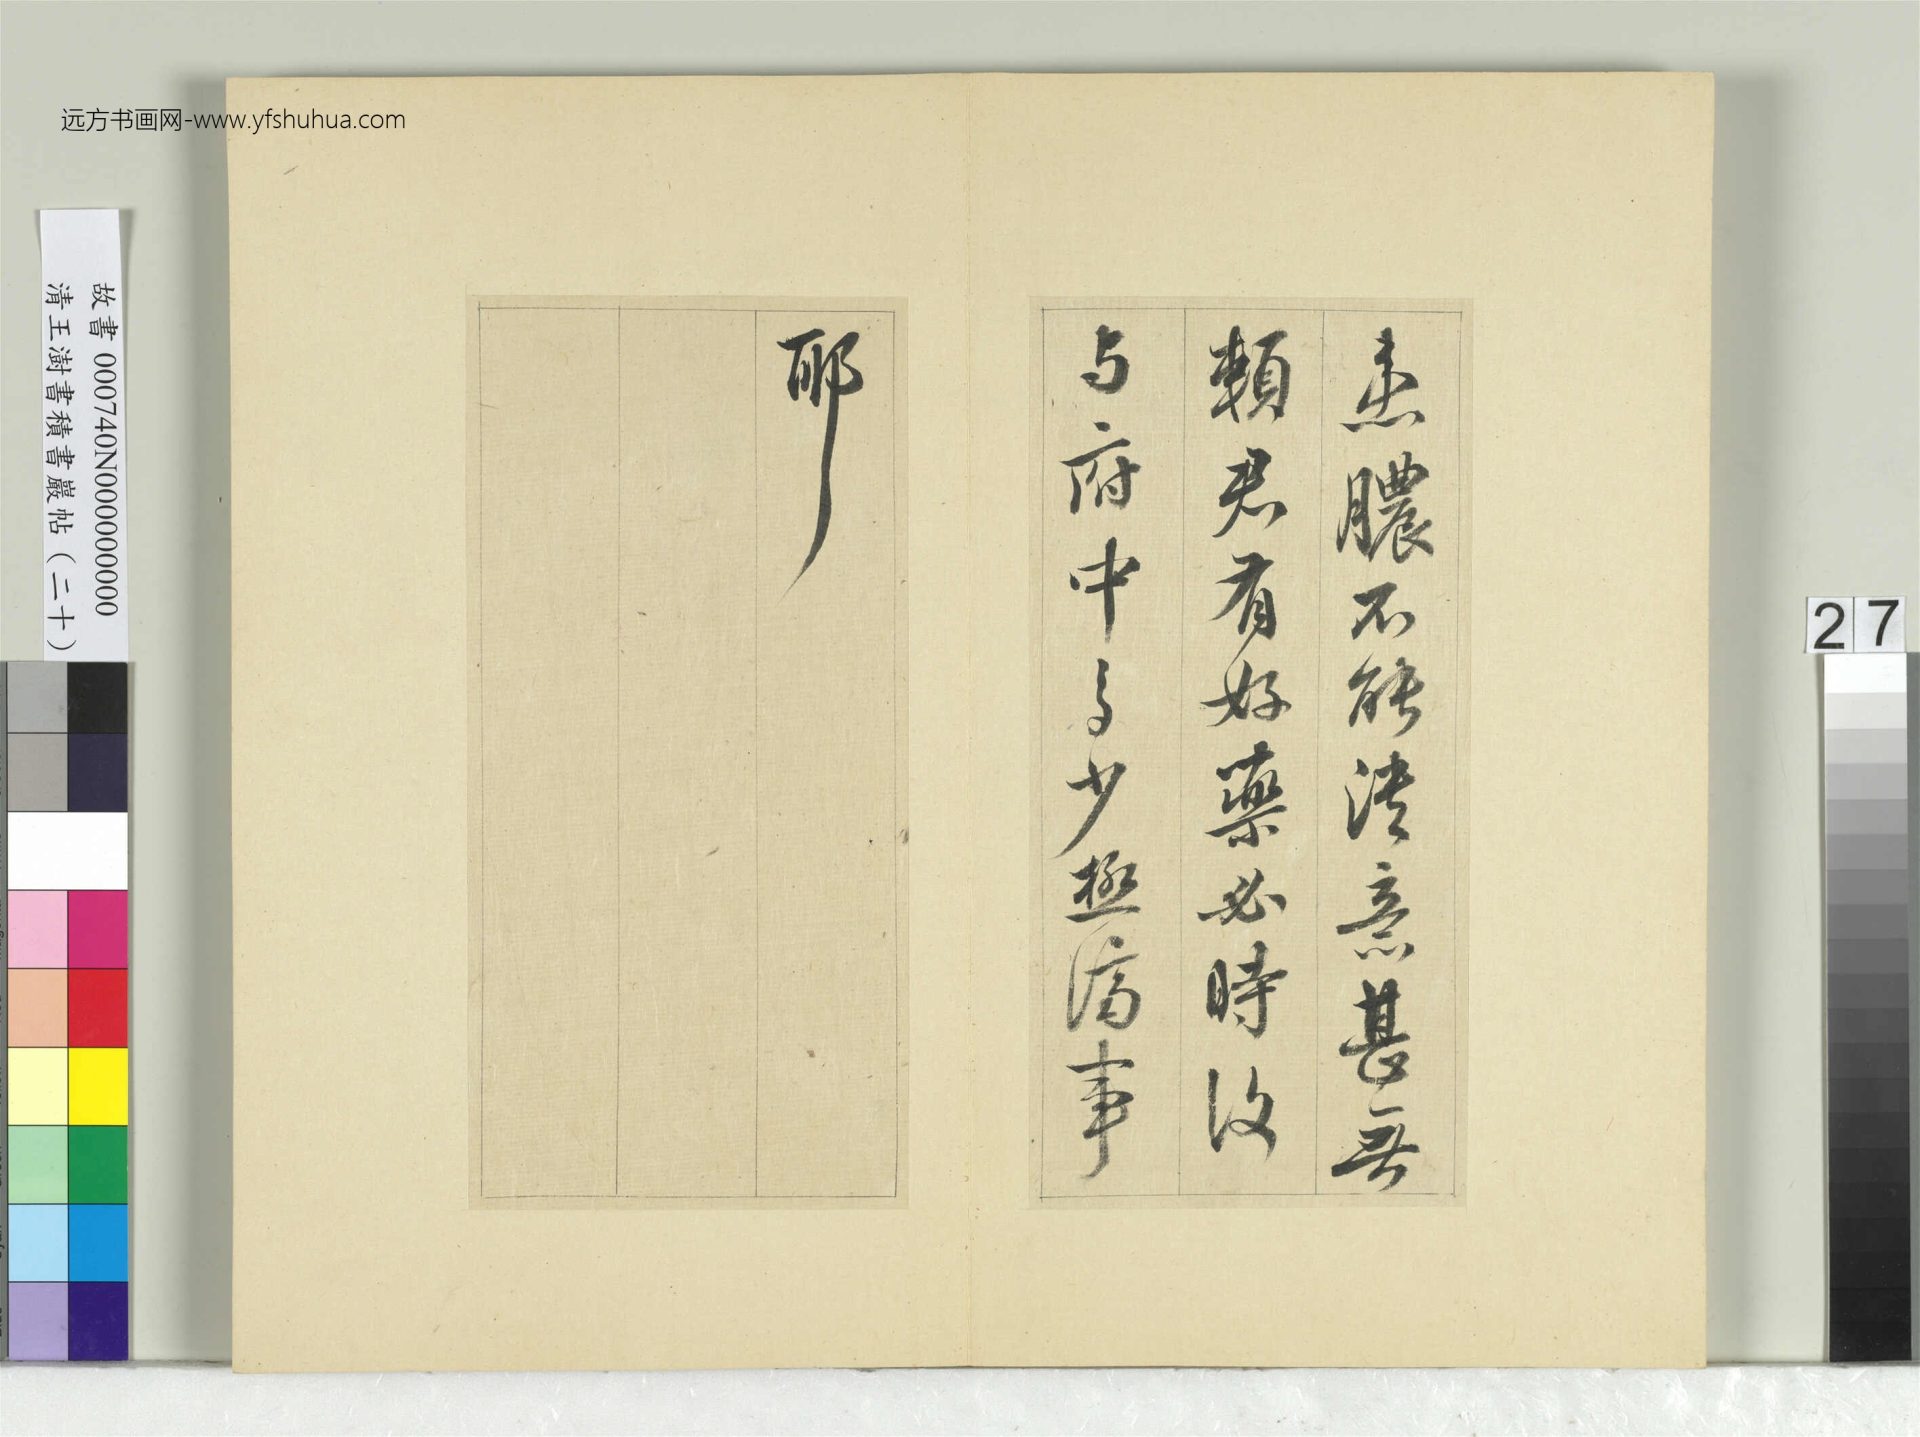 远方书画网-www.yfshuhua.com
故書 000740N000000000
清王澍書積書巖帖（二十）
27
患膿不能潰意甚無
賴君有好藥必時
与府中少極濟事
耶